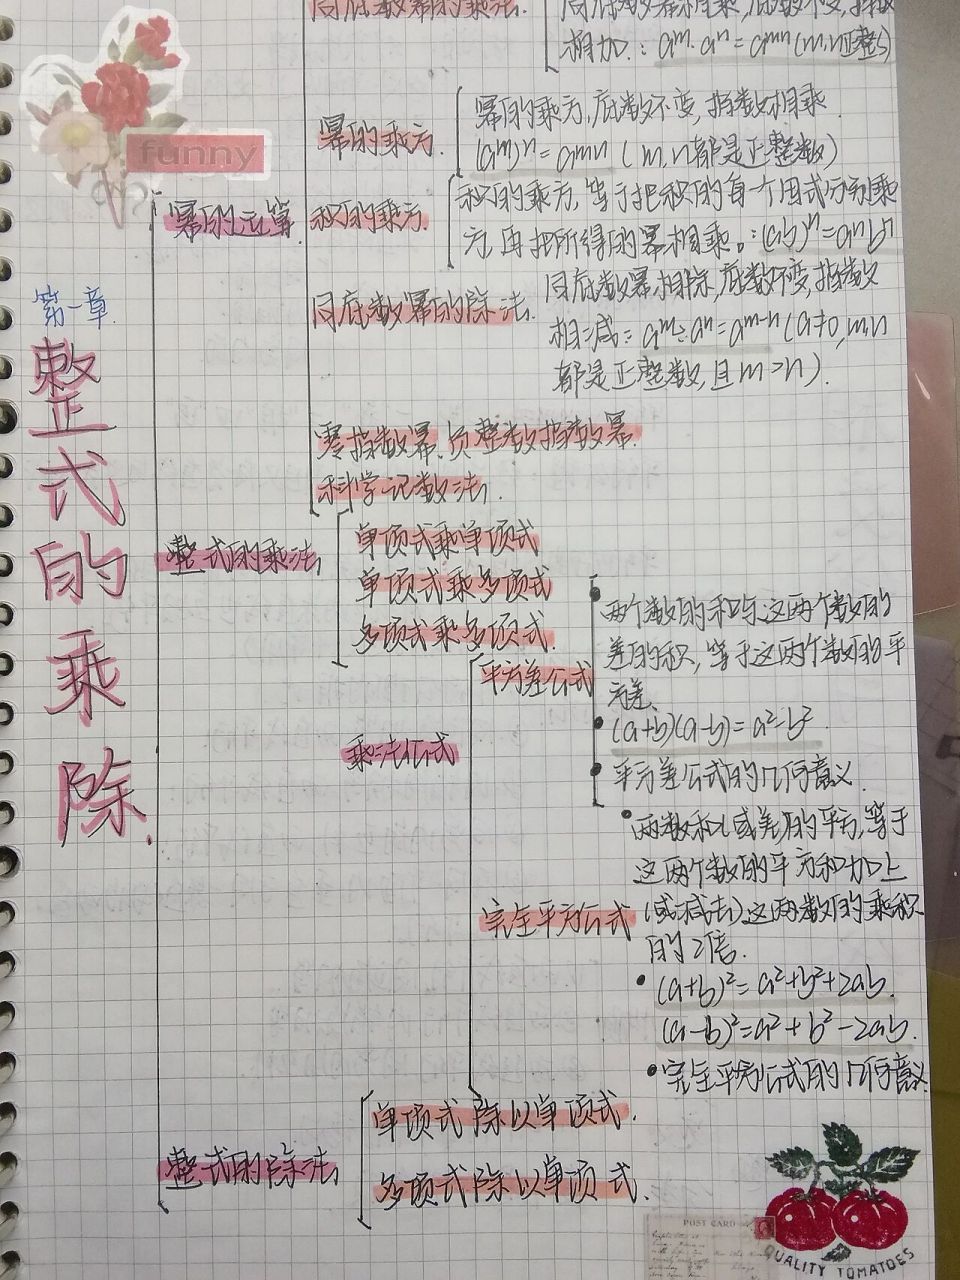 同底数幂的乘法.
同底数幂相乘,底数不变,指数
相加: aᵐ·aⁿ=aᵐ⁺ⁿ(m,n正整)
funny
幂的乘方.
幂的乘方,底数不变,指数相乘.
(aᵐ)ⁿ=aᵐⁿ(m,n都是正整数)
幂的运算.
积的乘方.
积的乘方,等于把积的每一个因式分别乘
方,再把所得的幂相乘。:(ab)ⁿ=aⁿbⁿ
第一章.
整式的乘除.
同底数幂的除法.
同底数幂相除,底数不变,指数
相减:aᵐ÷aⁿ=aᵐ⁻ⁿ(a≠0,m,n
都是正整数,且m>n).
零指数幂.负整数指数幂.
科学记数法.
整式的乘法
单项式乘单项式
单项式乘多项式
多项式乘多项式.
乘法公式
平方差公式
两个数的和与这两个数的
差的积,等于这两个数的平
方差.
(a+b)(a-b)=a²-b².
平方差公式的几何意义.
完全平方公式
两数和(或差)的平方,等于
这两个数的平方和加上
(或减去)这两数的乘积
的2倍.
(a+b)²=a²+b²+2ab.
(a-b)²=a²+b²-2ab.
完全平方公式的几何意义.
整式的除法
单项式除以单项式.
多项式除以单项式.
POST CARD
QUALITY TOMATOES